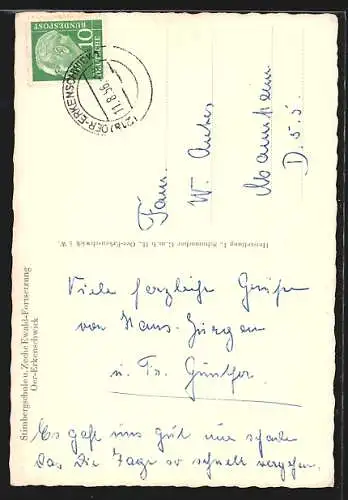 Stimbergschule u. Zeche Ewald-Fortsetzung
Oer-Erkenschwick
10
BUNDESPOST
(21a) OER-ERKENSCHWICK
11.8.56
Fam.
W. Antes
Mannheim
D. 5. 5
Viele herzliche Grüße
von Hans-Jürgen
u. Fr. Günther
Es geht uns gut nur schade
das die Tage so schnell vergehen.